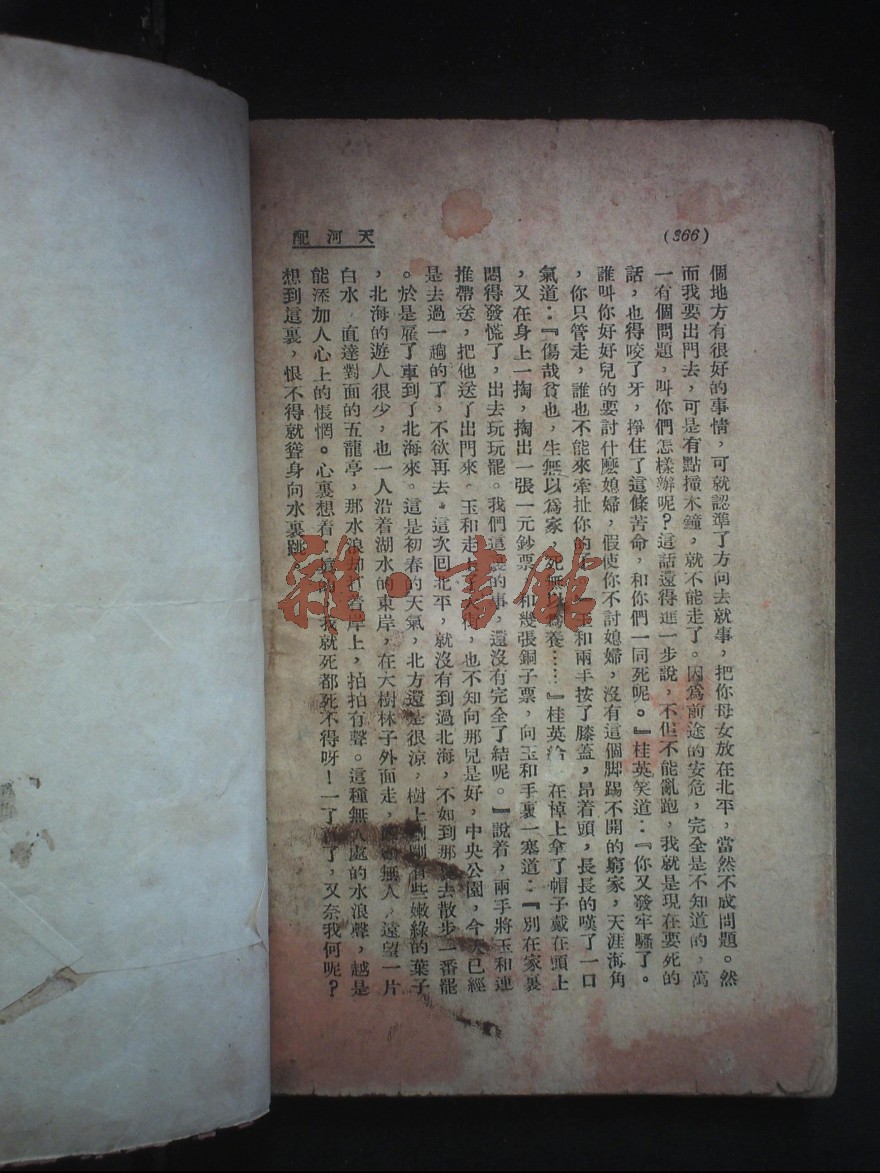 天河配
(366)
個地方有很好的事情，可就認準了方向去就事，把你母女放在北平，當然不成問題。然
而我要出門去，可是有點撞木鐘，就不能走了。因爲前途的安危，完全是不知道的，萬
一有個問題，叫你們怎樣辦呢？這話還得進一步說，不但不能亂跑，我就是現在要死的
話，也得咬了牙，掙住了這條苦命，和你們一同死呢。』桂英笑道：『你又發牢騷了。
誰叫你好好兒的要討什麽媳婦，假使你不討媳婦，沒有這個脚踢不開的窮家，天涯海角
，你只管走，誰也不能來牽扯你的 玉和兩手按了膝蓋，昂着頭，長長的嘆了一口
氣道：『傷哉貧也，生無以爲家，死無以爲養……』桂英 在桌上拿了帽子戴在頭上
，又在身上一掏，掏出一張一元鈔票，和幾張銅子票，向玉和手裏一塞道：『別在家裏
悶得發慌了，出去玩玩罷。我們這 的事，還沒有完全了結呢。』說着，兩手將玉和連
推帶送，把他送了出門來。玉和走上了大街，也不知向那兒是好，中央公園，今天已經
是去過一趟的了，不欲再去。這次回北平，就沒有到過北海，不如到那 去散步一番罷
。於是雇了車到了北海來。這是初春的天氣，北方還是很涼，樹上剛剛有些嫩綠的葉子
，北海的遊人很少，也一人沿着湖水的東岸，在大樹林子外面走， 無人，遠望一片
白水，直達對面的五龍亭，那水浪 打着岸上，拍拍有聲。這種無人處的水浪聲，越是
能添加人心上的悵惘。心裏想着： 我就死都死不得呀！一了 了，又奈我何呢？
想到這裏，恨不得就聳身向水裏跳
雜·書館